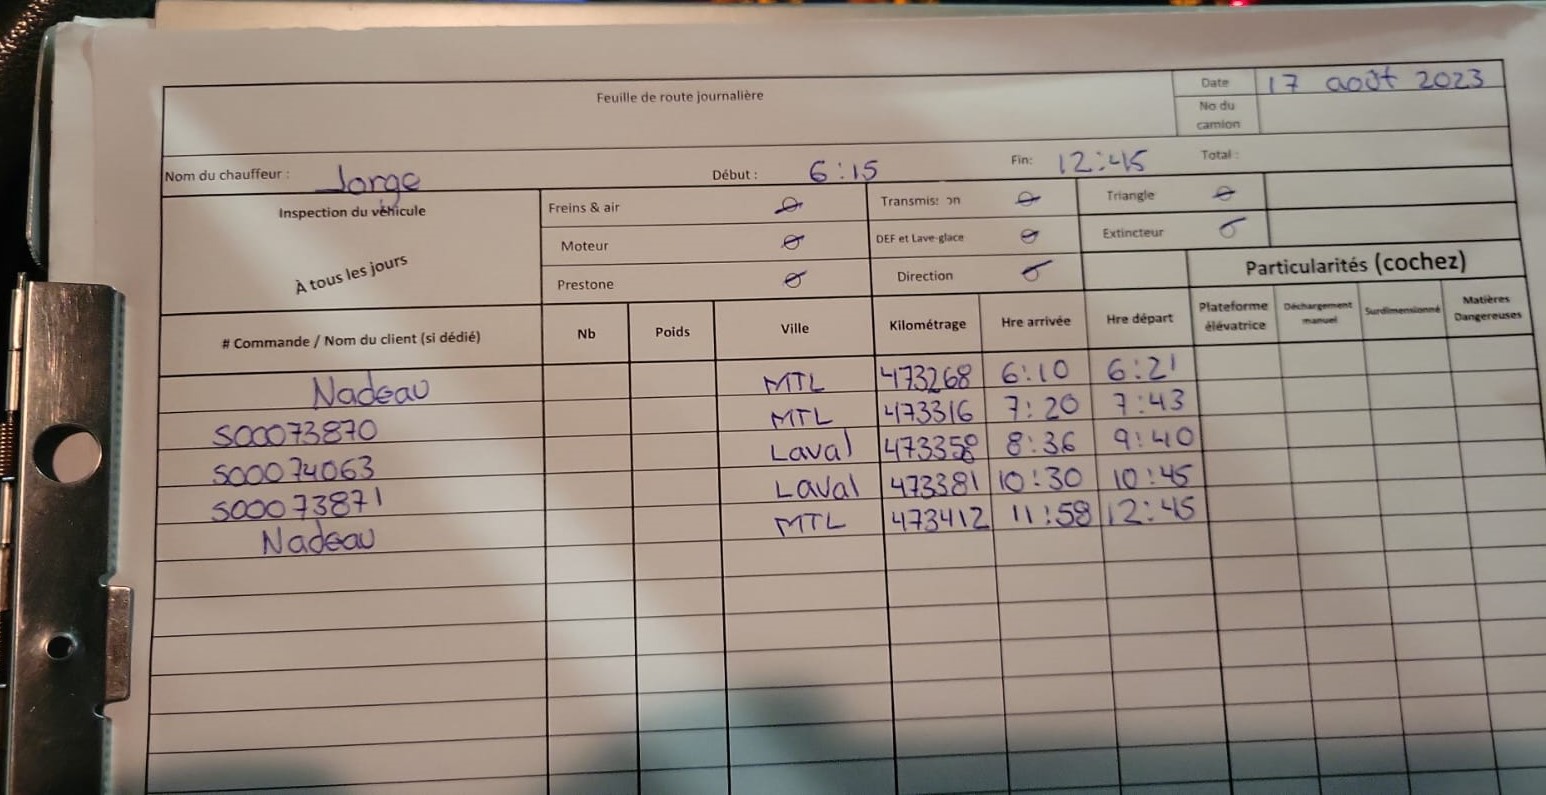 Feuille de route journalière
Date 17 août 2023
No du camion
Nom du chauffeur : Jorge Début : 6:15 Fin: 12:45 Total :
Inspection du véhicule
À tous les jours
Freins & air Transmission Triangle
Moteur DEF et Lave-glace Extincteur
Prestone Direction
Particularités (cochez)
# Commande / Nom du client (si dédié) Nb Poids Ville Kilométrage Hre arrivée Hre départ Plateforme élévatrice Déchargement manuel Surdimensionné Matières Dangereuses
Nadeau MTL 473268 6:10 6:21
S00073870 MTL 473316 7:20 7:43
S00074063 Laval 473358 8:36 9:40
S00073871 Laval 473381 10:30 10:45
Nadeau MTL 473412 11:58 12:45